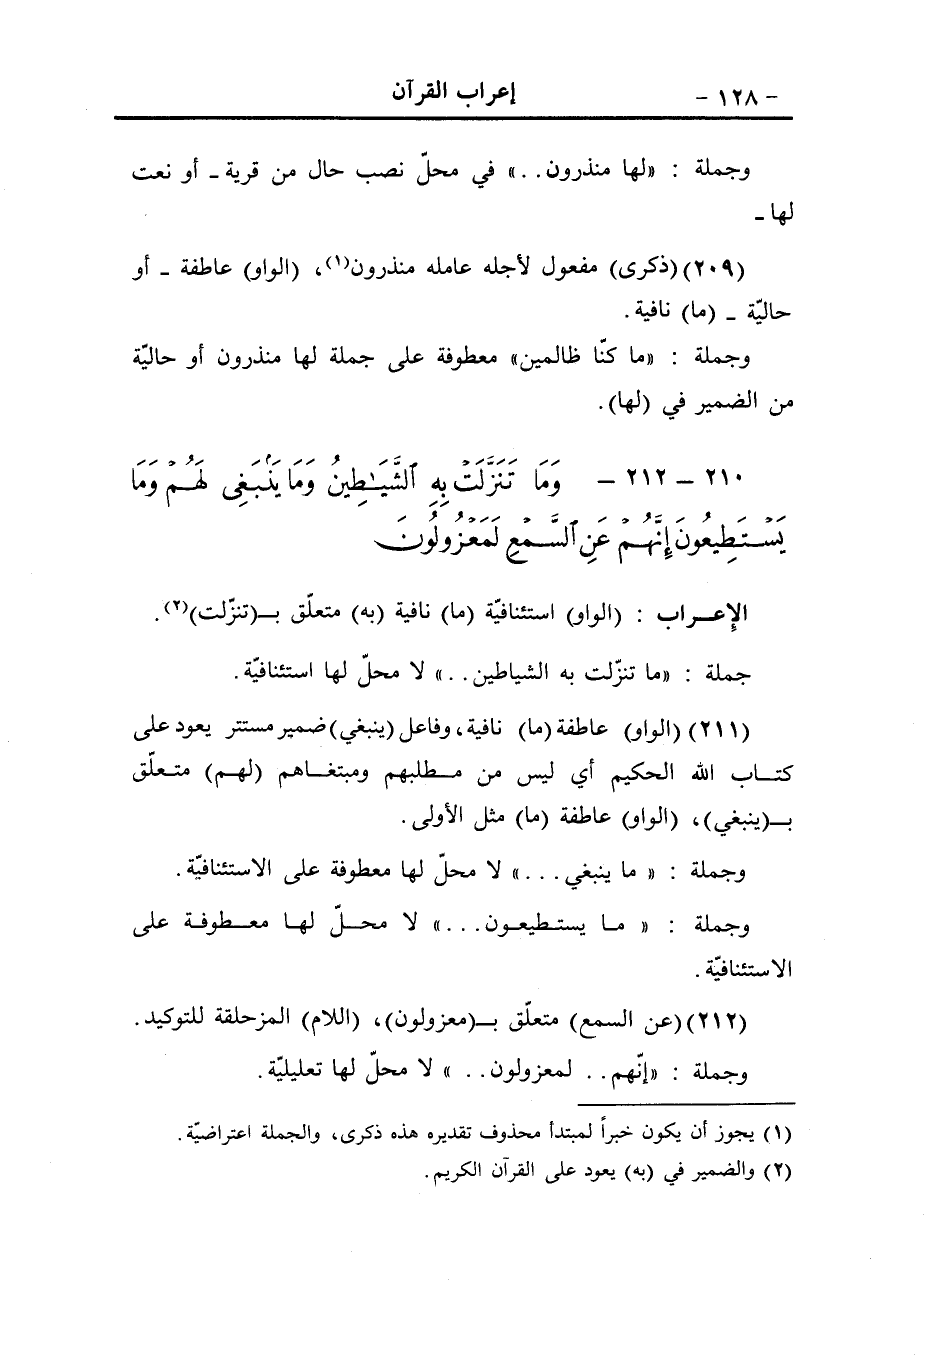 - ١٢٨ - إعراب القرآن
وجملة : «لها منذرون..» في محلّ نصب حال من قرية ـ أو نعت
لها ـ
(٢٠٩)(ذكرى) مفعول لأجله عامله منذرون(١)، (الواو) عاطفة ـ أو
حاليّة ـ (ما) نافية.
وجملة : «ما كنّا ظالمين» معطوفة على جملة لها منذرون أو حاليّة
من الضمير في (لها).
٢١٠ - ٢١٢ - وَمَا تَنَزَّلَتْ بِهِ ٱلشَّيَٰطِينُ وَمَا يَنۢبَغِى لَهُمْ وَمَا
يَسْتَطِيعُونَ إِنَّهُمْ عَنِ ٱلسَّمْعِ لَمَعْزُولُونَ
الإعـراب : (الواو) استئنافيّة (ما) نافية (به) متعلّق بـ(تنزّلت)(٢).
جملة : «ما تنزّلت به الشياطين..» لا محلّ لها استئنافيّة.
(٢١١) (الواو) عاطفة (ما) نافية، وفاعل (ينبغي) ضمير مستتر يعود على
كتـاب الله الحكيم أي ليس من مـطلبهم ومبتغـاهم (لهـم) متـعلّق
بـ(ينبغي)، (الواو) عاطفة (ما) مثل الأولى.
وجملة : « ما ينبغي...» لا محلّ لها معطوفة على الاستئنافيّة.
وجملة : « مـا يستـطيعـون...» لا محـلّ لهـا معـطوفـة على
الاستئنافيّة.
(٢١٢)(عن السمع) متعلّق بـ(معزولون)، (اللام) المزحلقة للتوكيد.
وجملة : «إنّهم.. لمعزولون.. » لا محلّ لها تعليليّة.
(١) يجوز أن يكون خبراً لمبتدأ محذوف تقديره هذه ذكرى، والجملة اعتراضيّة.
(٢) والضمير في (به) يعود على القرآن الكريم.